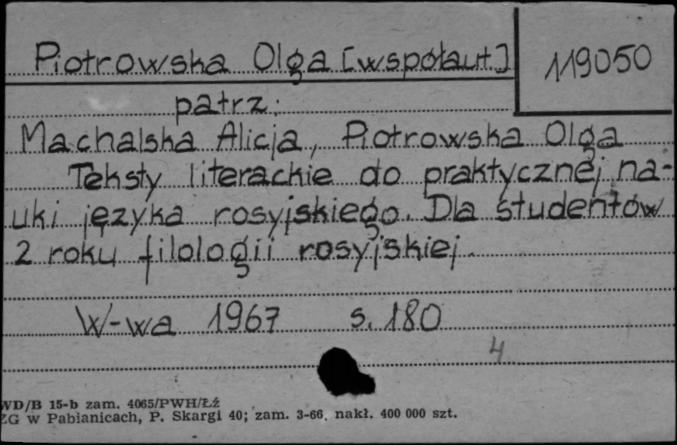 Piotrowska Olga [współaut.]
119050
patrz:
Machalska Alicja, Piotrowska Olga
Teksty literackie do praktycznej na-
uki języka rosyjskiego. Dla studentów
2 roku filologii rosyjskiej.
W-wa 1967 s. 180
4
WD/B 15-b zam. 4065/PWH/Łż
ZG w Pabianicach, P. Skargi 40; zam. 3-66, nakł. 400 000 szt.